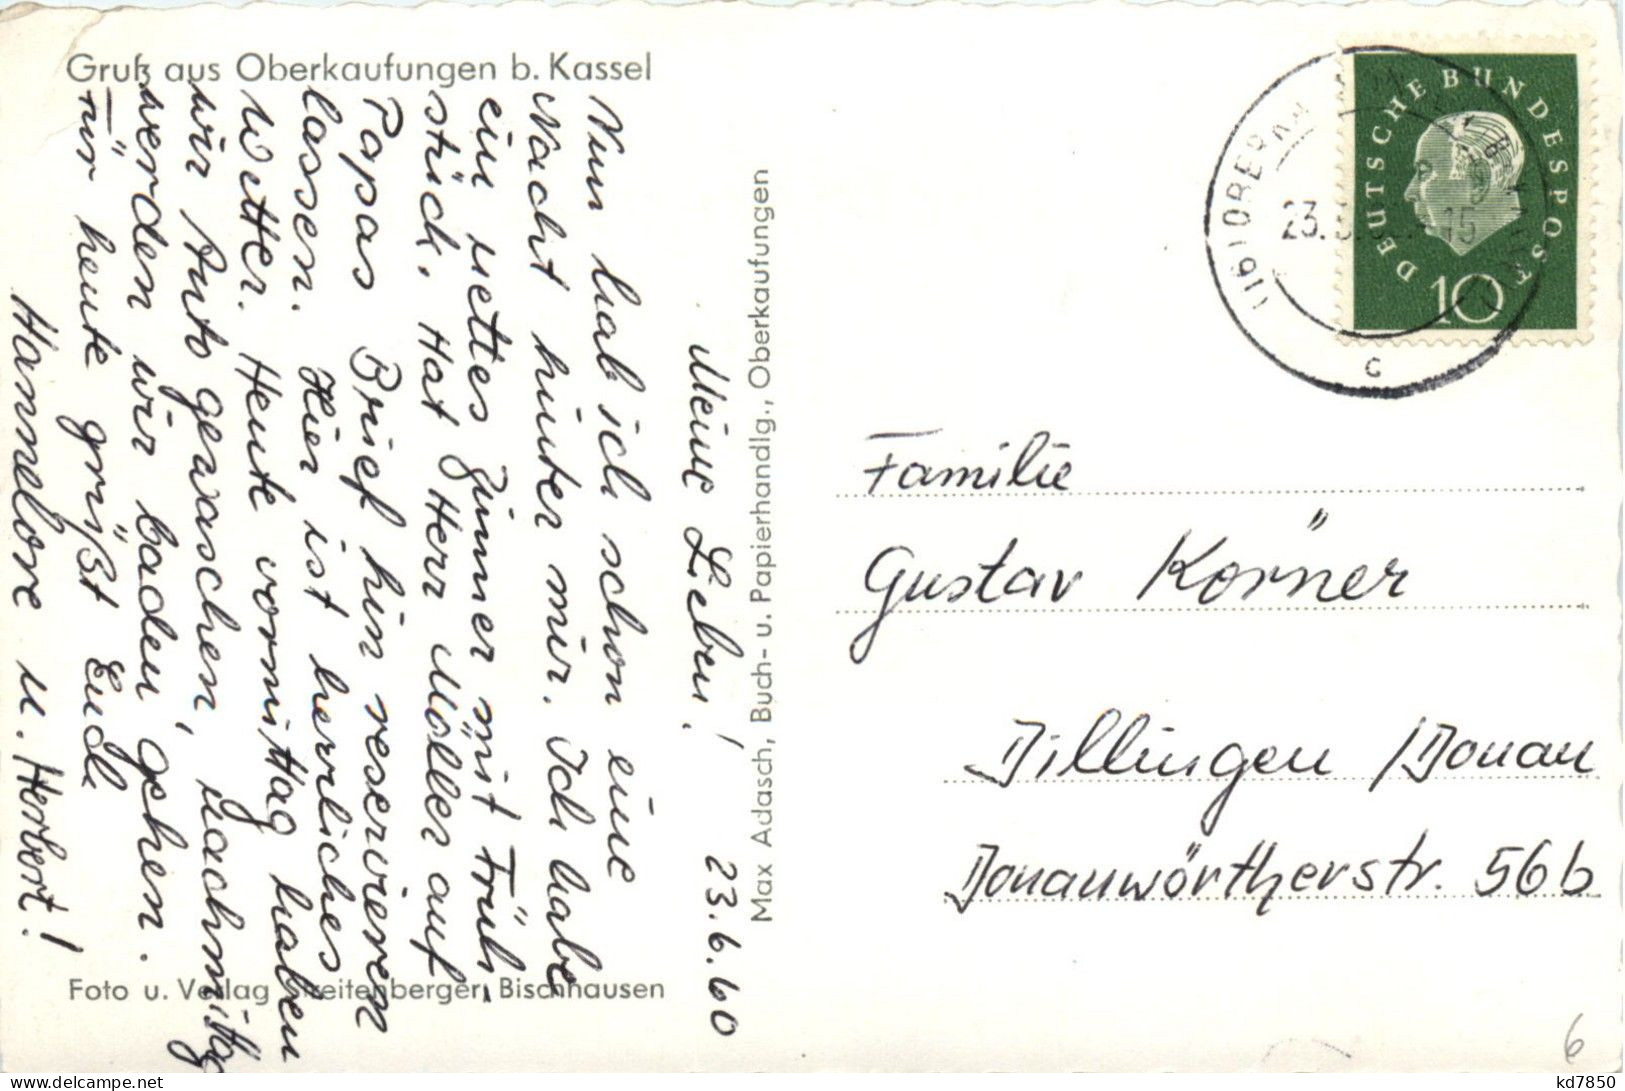 Gruß aus Oberkaufungen b. Kassel
23.6.60
Meine Lieben!
Nun hab ich schon eine
Nacht hinter mir. Ich habe
ein nettes Zimmer mit Früh-
stück. Hat Herr Möller auf
Papas Brief hin reservieren
lassen. Hier ist herrliches
Wetter. Heute vormittag haben
wir Auto gewaschen, nachmittag
werden wir baden gehen.
Für heute grüßt Euch
Hannelore u. Herbert!
Foto u. Verlag Bischhausen
Max Adasch, Buch- u. Papierhandlg., Oberkaufungen
DEUTSCHE BUNDESPOST
10
(16) OBERKAUFUNGEN
23. 15
c
Familie
Gustav Körner
Dillingen /Donau
Donauwörtherstr. 56b
6
kd7850